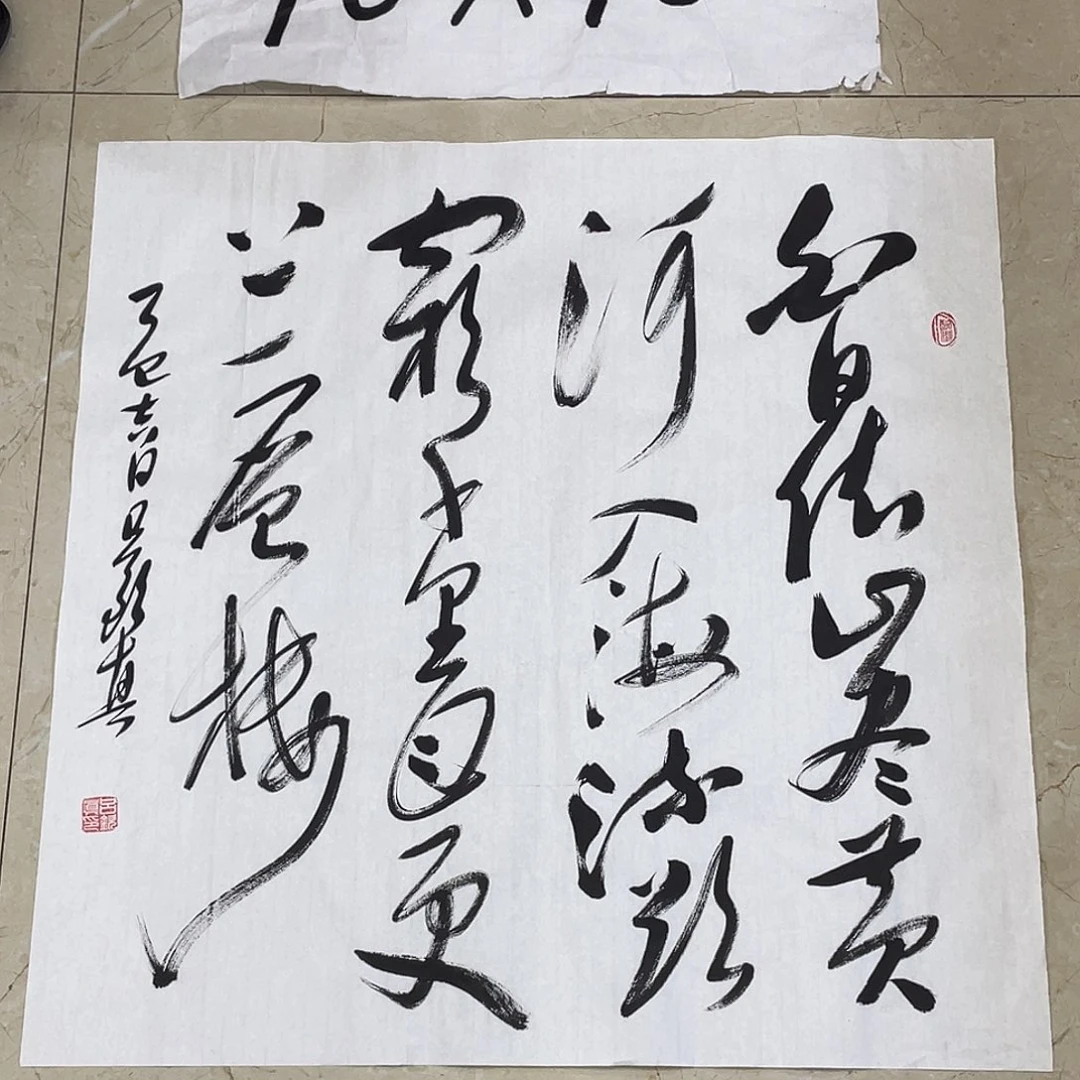 白日依山尽黄
河入海流欲
窮千里目更
上一層楼
乙巳吉日吕